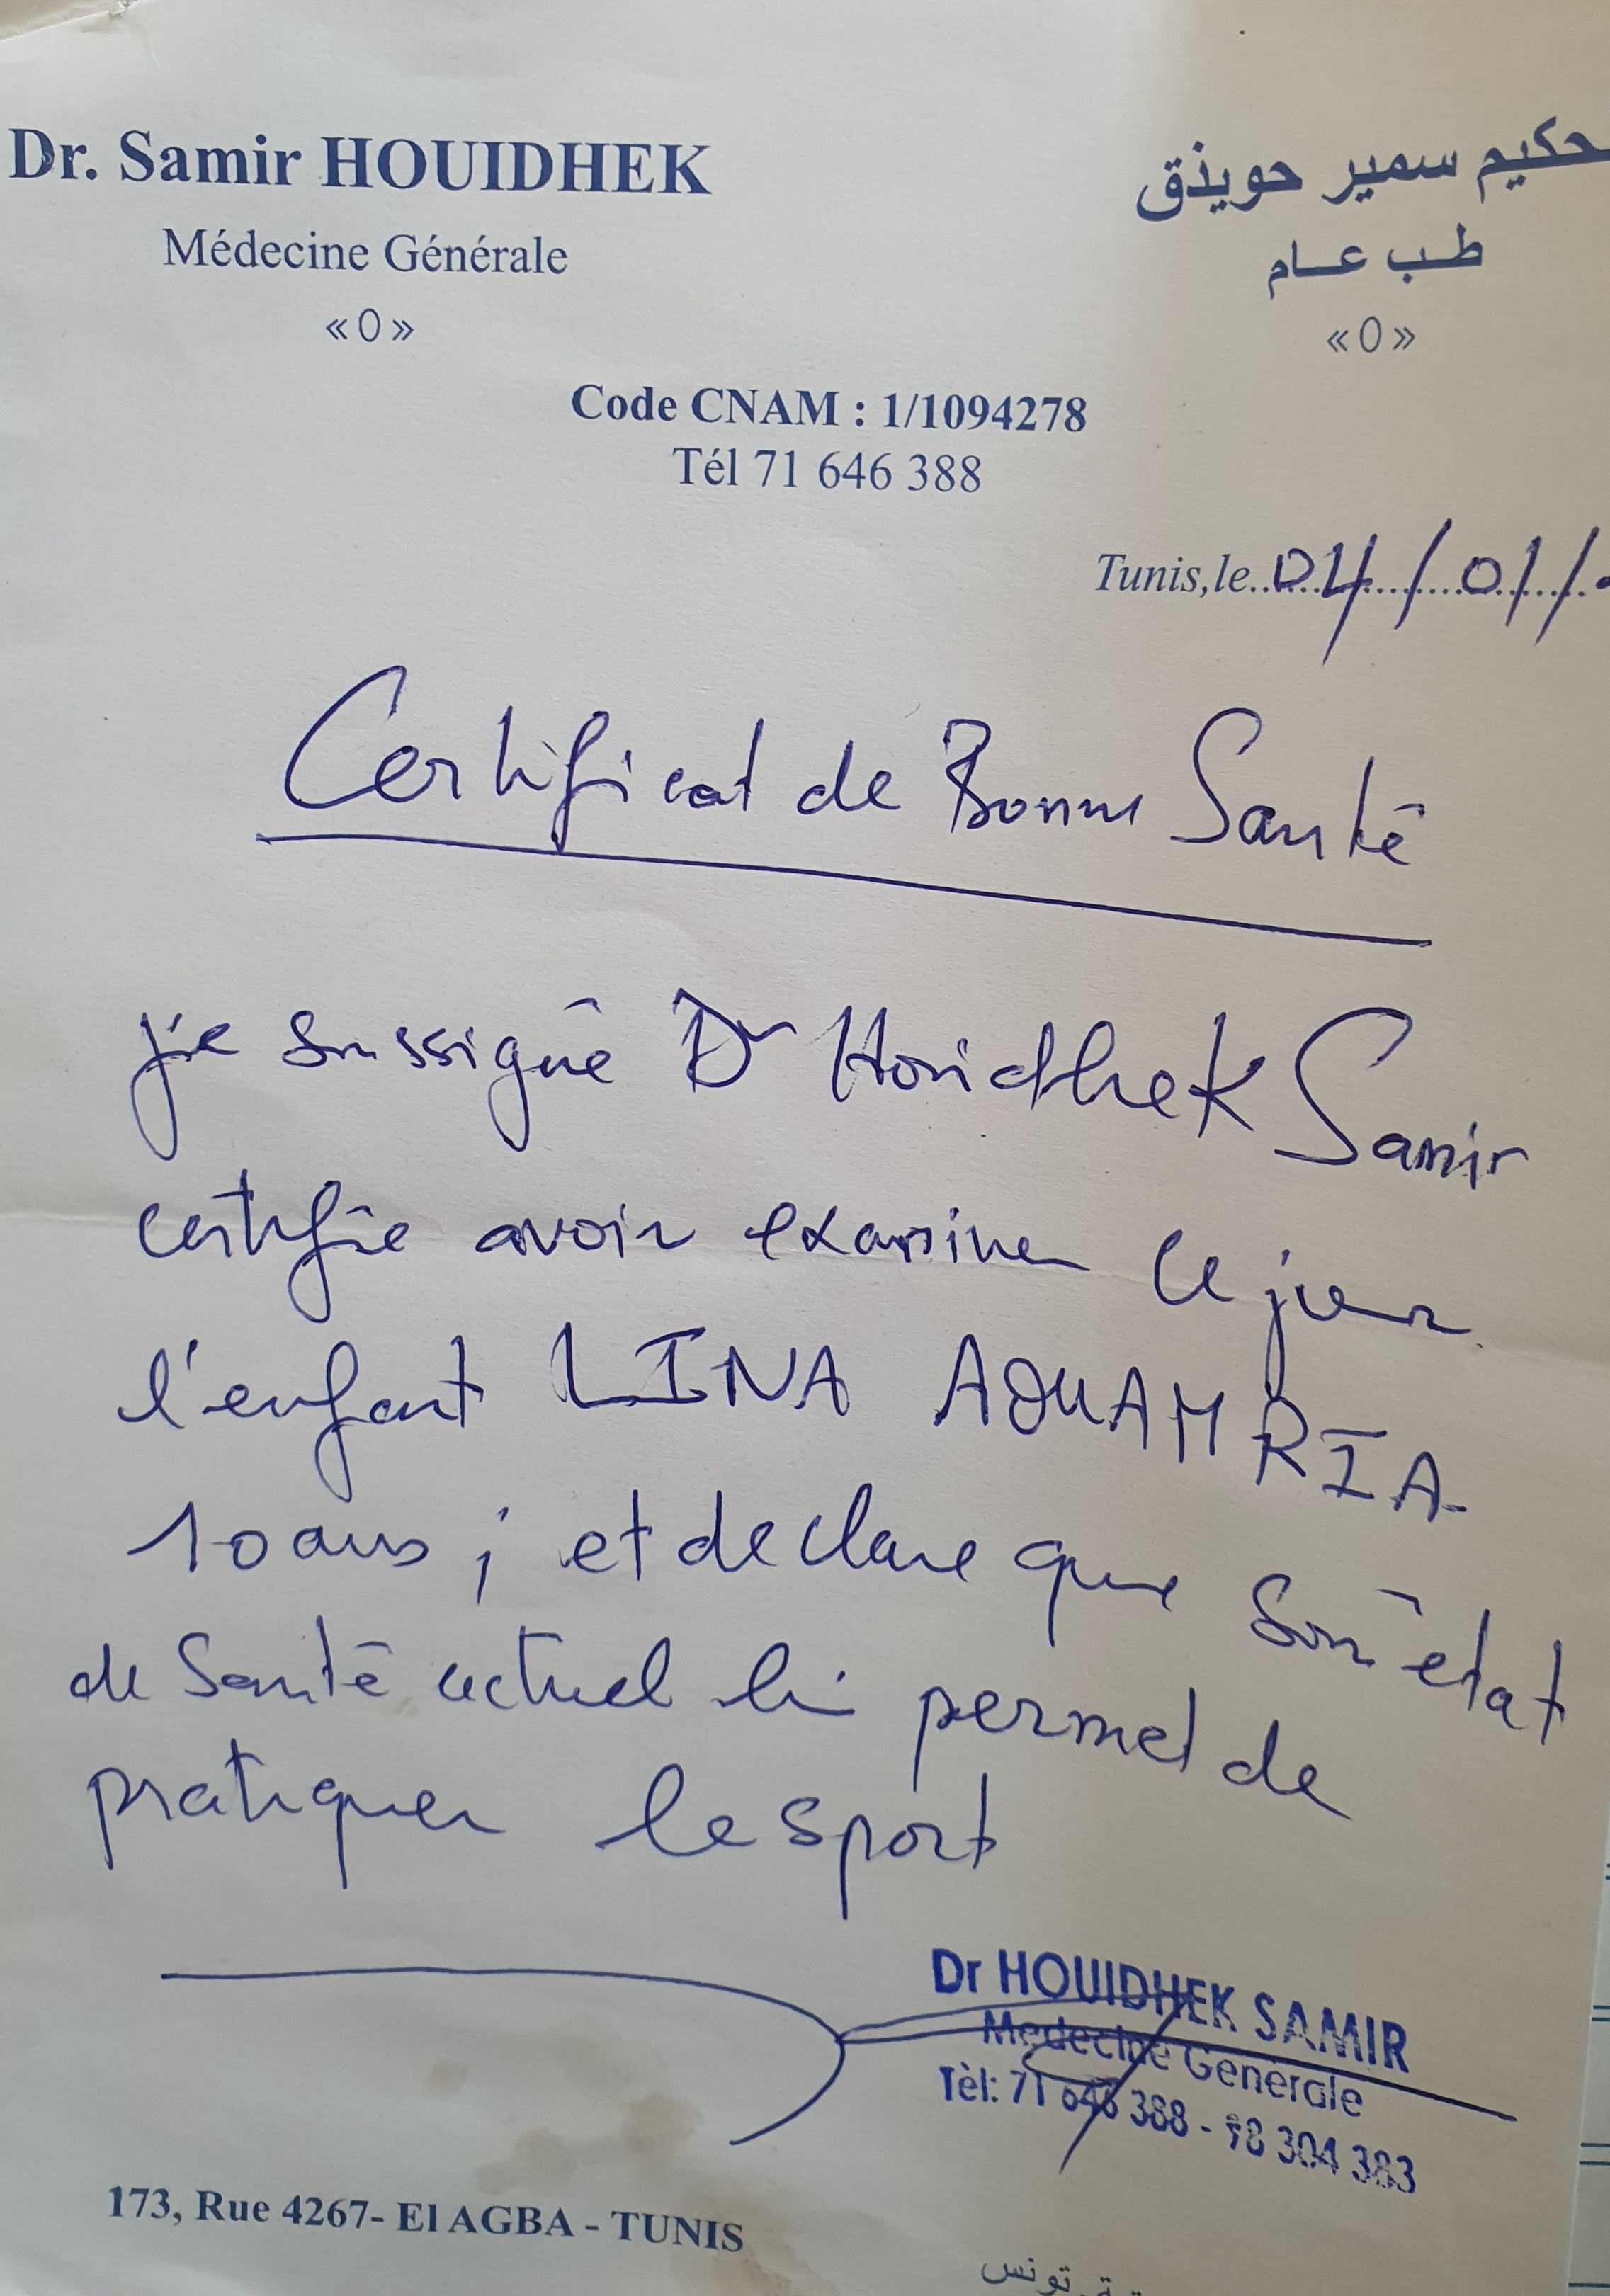 Dr. Samir HOUIDHEK
Médecine Générale
«O»
حكيم سمير حويذق
طب عام
«O»
Code CNAM : 1/1094278
Tél 71 646 388
Tunis,le 04/01/
Certificat de Bonne Santé
je soussigné Dr Houidhek Samir
certifie avoir examiner ce jour
l'enfant LINA AOUAMRIA
10 ans ; et declare que son état
de Santé actuel lui permet de
pratiquer le sport
Dr HOUIDHEK SAMIR
Médecine Générale
Tèl: 71 646 388 - 98 304 383
173, Rue 4267- El AGBA - TUNIS
تونس